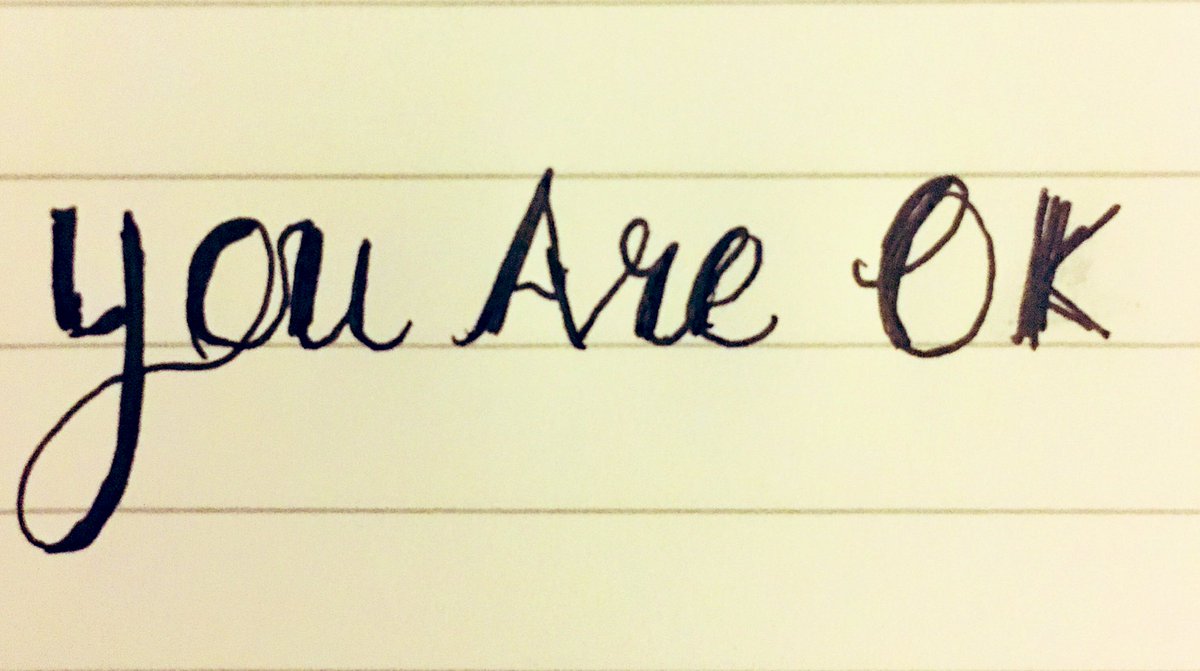 you Are OK